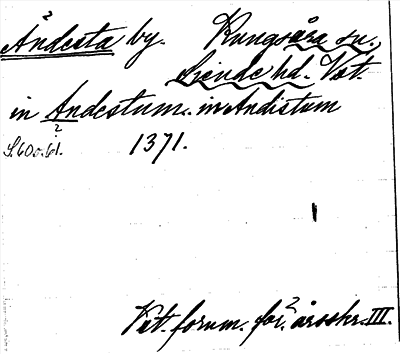 Ändesta by. Kungsåra sn.
Siende hd. Vstm.
in Andestum. in Andistum
S. 60 o. 61. 1371.
Vstm. fornm. för. årsskr. III.